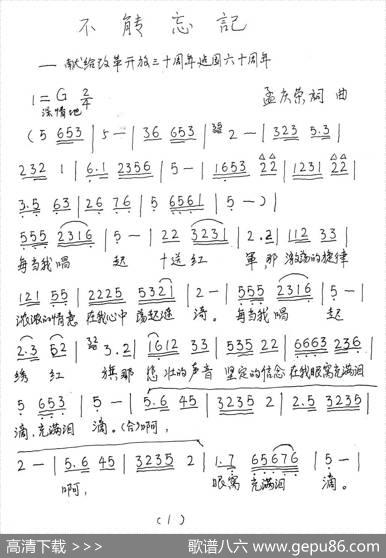 不能忘记
——献给改革开放三十周年建国六十周年
1=G 2/4
深情地
孟庆荣词 曲
(5 653 | 5 - | 36 653 | 2 - | 323 5.3 |
232 1 | 6.1 2356 | 5 - | 1653 22 | 1231 22 |
3.5 63 | 26 76 | 5 6561 | 5 - ) |
555 2316 | 5 - | 22 3231 | 2.2 | 112 33 |
每当我唱 起 十送红 军,那 激荡的旋律
121 55 | 2225 5321 | 2 - | 555 2316 | 5 - |
浓浓的情意 在我心中 荡起涟 漪。 每当我唱 起
2.3 52 | 3.2 | 1612 33 | 535 22 | 6663 236 |
绣 红 旗那 悲壮的声音 坚定的信念 在我眼窝充满泪
5 653 | 5 - | 5.6 45 | 3235 2 | 2.5 3235 |
滴,充满泪 滴。(合)啊,
2 - | 5.6 45 | 3235 2 | 1.7 65676 | 5 - |
啊, 眼窝 充满泪 滴。
(1)
高清下载 >>>
歌谱八六 www.gepu86.com